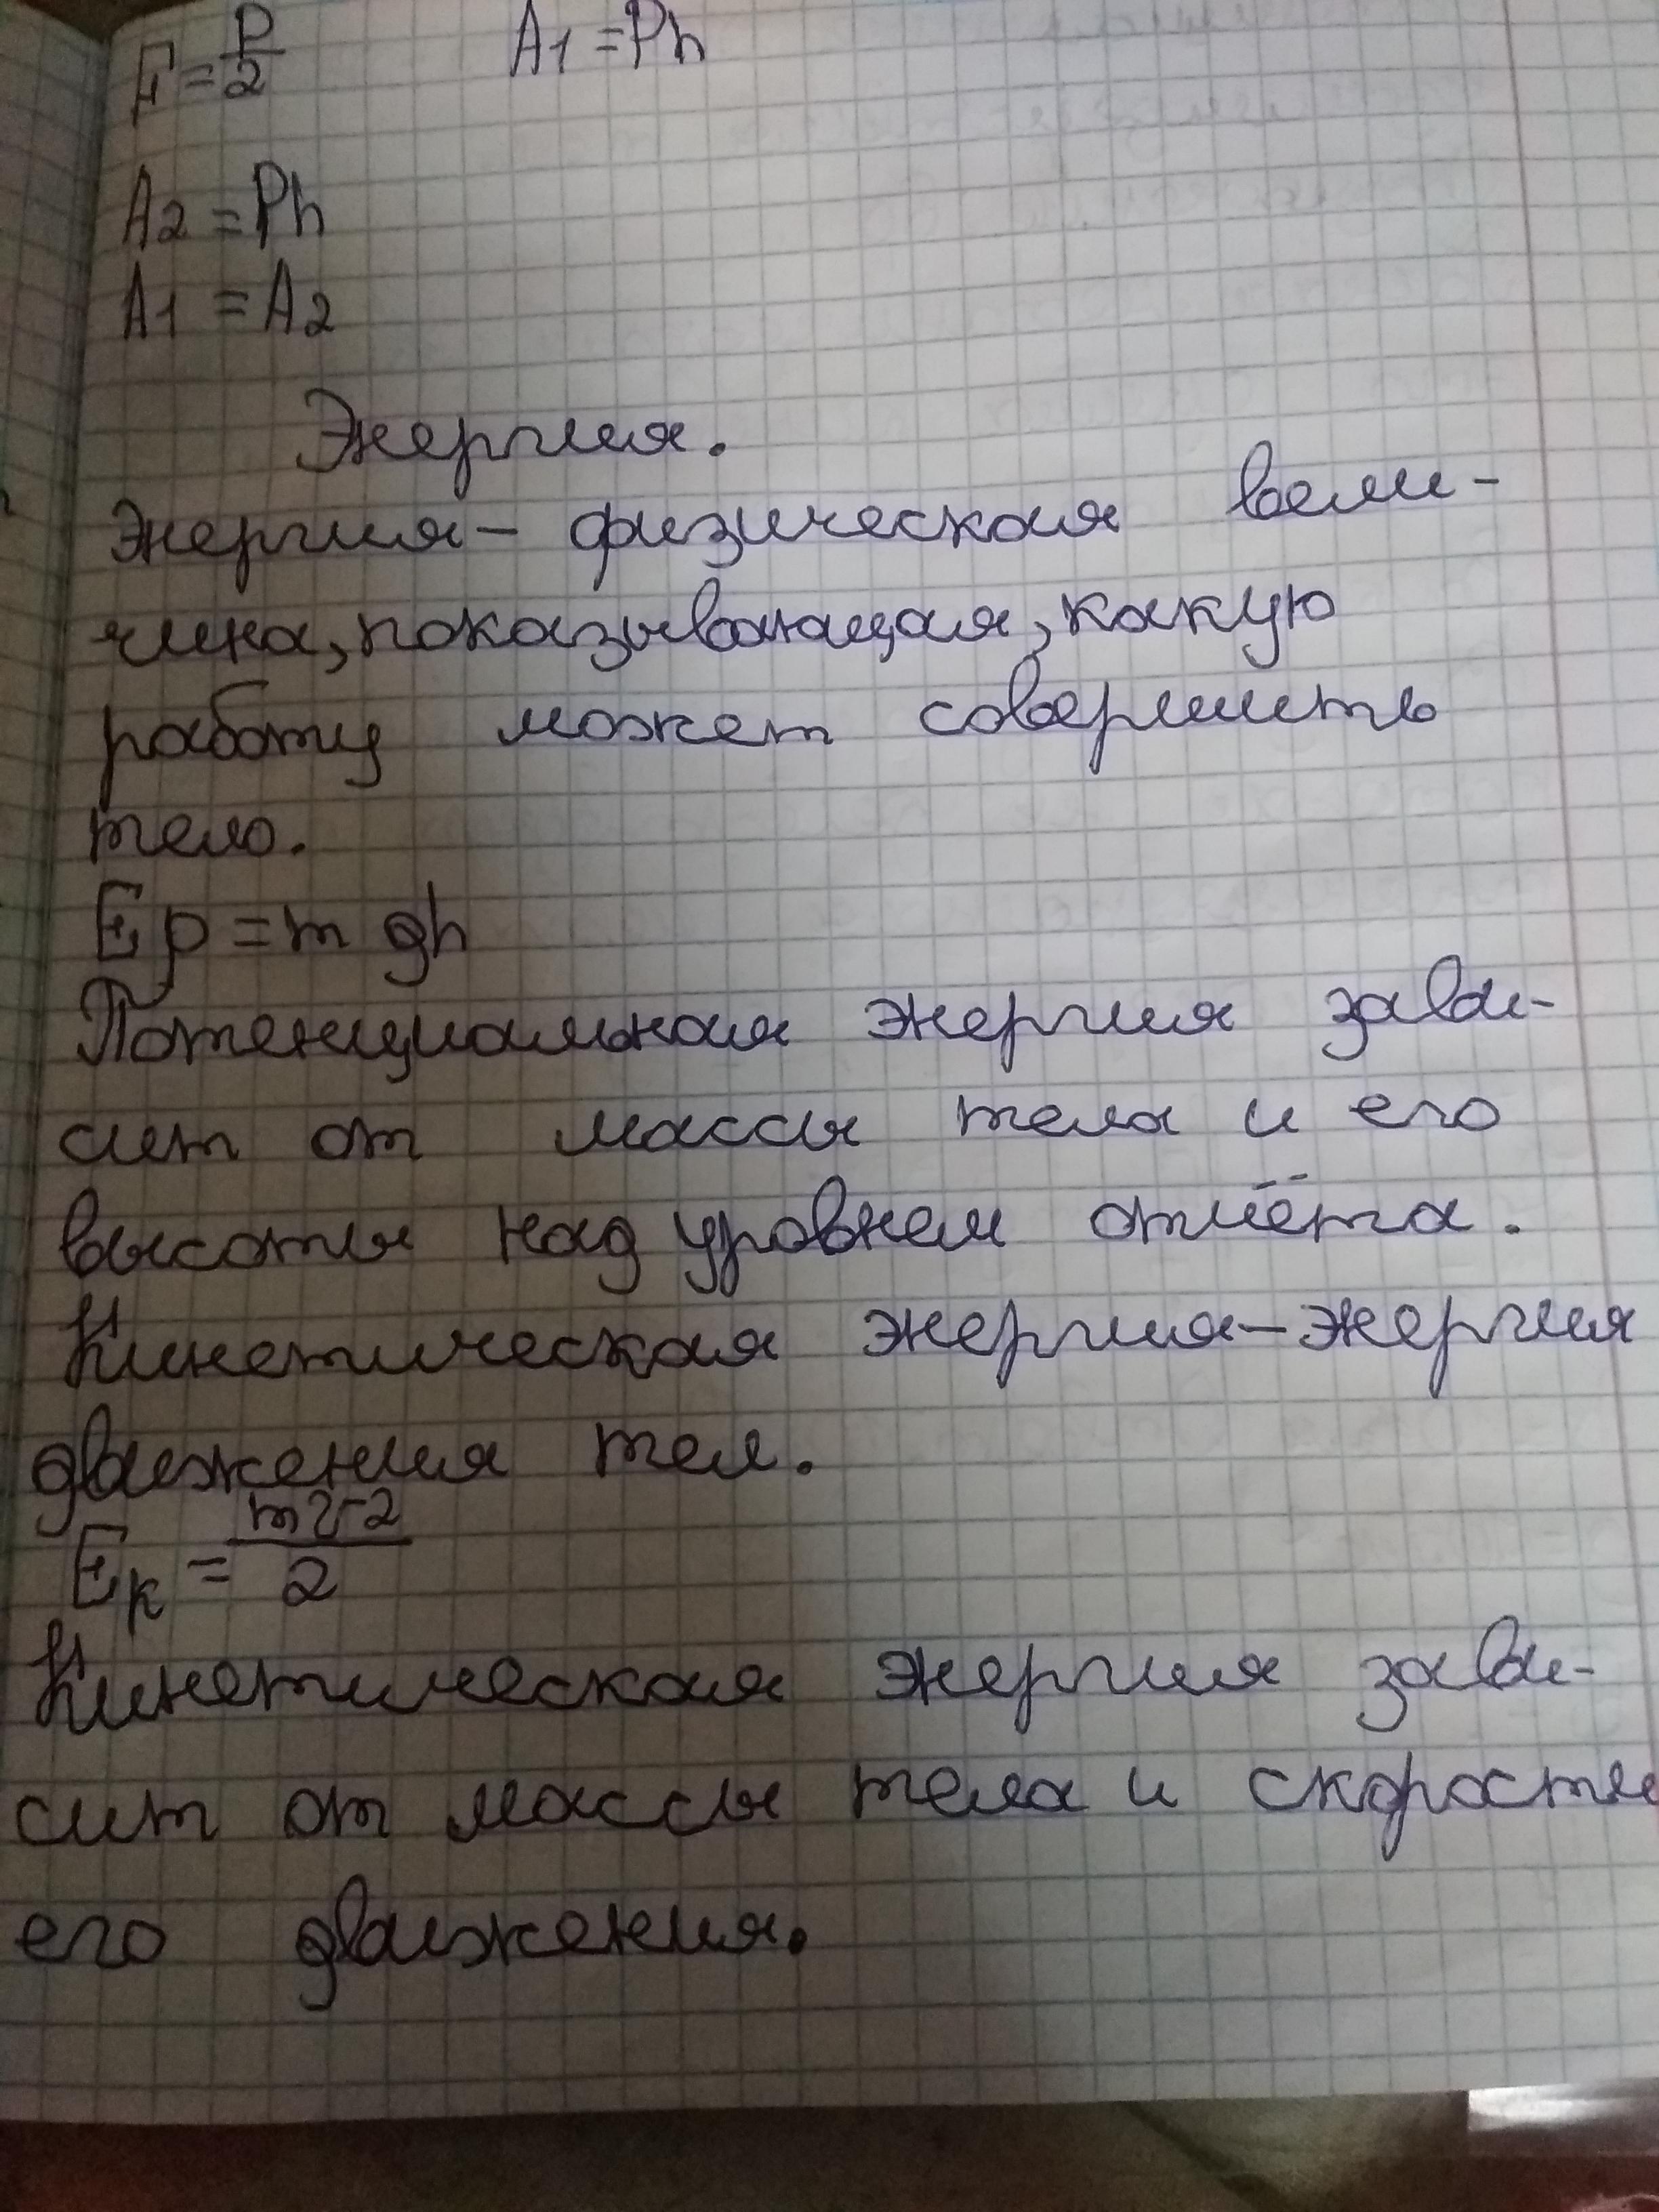 F = P/2 A1 = Ph
A2 = Ph
A1 = A2
Энергия.
Энергия – физическая вели-
чина, показывающая, какую
работу может совершить
тело.
Ep = m gh
Потенциальная энергия зави-
сит от массы тела и его
высоты над уровнем отчёта.
Кинетическая энергия – энергия
движения тел.
Eк = mv²/2
Кинетическая энергия зави-
сит от массы тела и скорости
его движения.